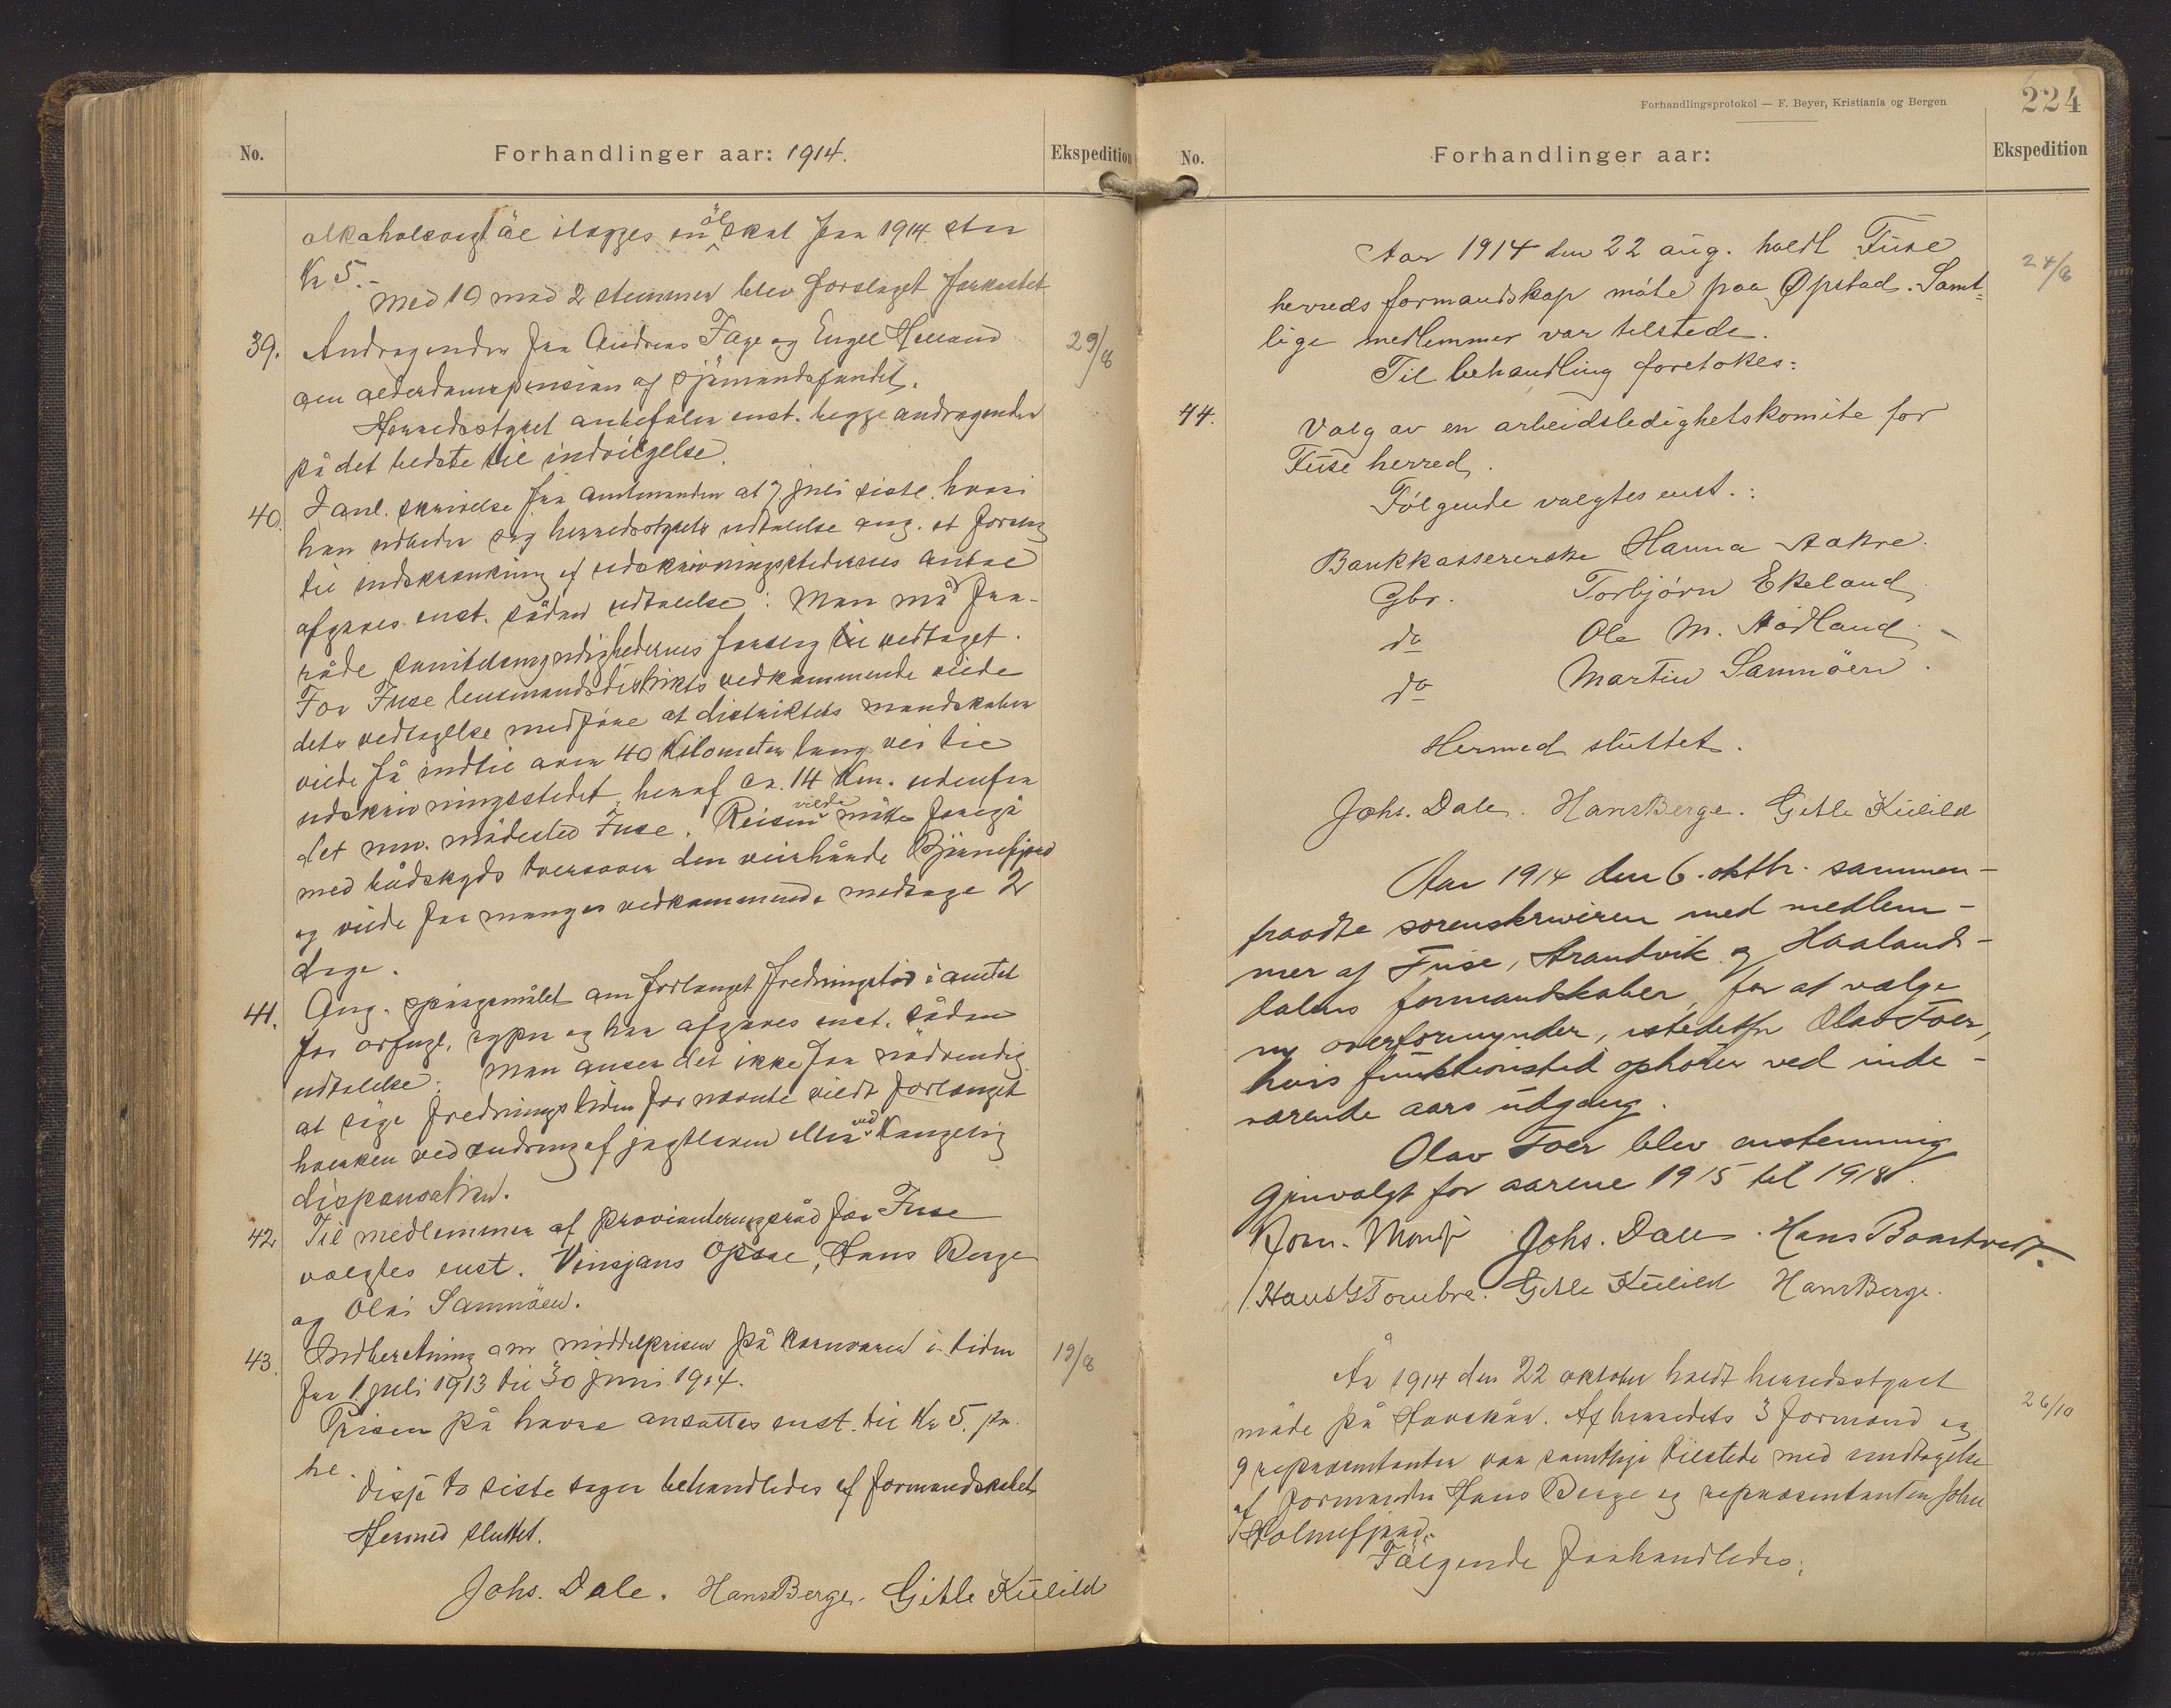 No.
Forhandlinger aar: 1914.
Ekspedition
alkoholsvagt öl ilegges en öl skat for 1914 stor
Kr 5.-
Med 10 mod 2 stemmer blev forslaget forkastet
39. Andragender fra Andreas Tage og Engel Helland 29/8
om alderdomspension af sjömandsfondet.
Herredsstyret anbefaler enst. begge andragender
på det bedste til indvilgelse.
40. I anl. skrivelse fra amtmanden af 7 juli sistl. hvori
han udbeder sig herredsstyrets udtalelse ang. et forslag
til indskrænkning af udskrivningsstedernes antal
afgaves enst. sådan udtalelse: Man må fra-
råde sanitetsmyndighedernes forslag til vedtaget.
For Fuse lensmandsdistrikts vedkommende vilde
dets vedtagelse medföre at distriktets mandskaber
vilde få indtil over 40 Kilometer lang vei til
udskrivningsstedet, heraf ca. 14 Km. udenfra
det nuv. mödested Fuse. Reisen vilde måtte foregå
med bådskyds tversover den veirhårde Björnefjord
og vilde for manges vedkommende medtage 2
dage.
41. Ang. spörgsmålet om forlænget fredningstid i amtet
for orfugl, rype og hare afgaves enst. sådan
udtalelse: Man anser det ikke for nödvendig
at söge fredningstiden for nævnte vildt forlænget
hverken ved ændring af jagtloven eller ved Kongelig
dispensation.
42. Til medlemmer af provianteringsråd for Fuse
valgtes enst. Vinsjans Opsal, Hans Berge
og Olai Samnöen.
43. Indberetning om middelprisen på kornvarer i tiden 19/8
fra 1 juli 1913 til 30 juni 1914.
Prisen på havre ansattes enst. til Kr 5. pr.
hl.
Disse to siste sager behandledes af formandskabet.
Hermed sluttet.
Johs. Dale. Hans Berge. Gitle Külild
Forhandlingsprotokol — F. Beyer, Kristiania og Bergen
224
No.
Forhandlinger aar:
Ekspedition
Aar 1914 den 22 aug. holdt Fuse 24/8
herreds formandskap möte paa Øpstad. Samt=
lige medlemmer var tilstede.
Til behandling foretokes:
44. Valg av en arbeidsledighetskomite for
Fuse herred.
Fölgende valgtes enst.:
Bankkassererske Hanna Aakre.
Gbr. Torbjörn Ekeland
do Ole M. Nödland
do Martin Samnöen.
Hermed sluttet.
Johs. Dale. Hans Berge. Gitle Külild
Aar 1914 den 6. oktbr. sammen-
traadte sorenskriveren med medlem-
mer af Fuse, Strandvik og Haaland-
dalens formandskaber, for at vælge
ny overformynder, istedetfor Olav Foer,
hvis funktionstid ophörer ved inde-
værende aars udgang.
Olav Foer blev enstemmig
gjenvalgt for aarene 1915 til 1918.
Johs. Dale. Hans Boartvedt.
Hans G Tombre. Gitle Külild Hans Berge.
År 1914 den 22 oktober holdt herredsstyret
möde på Havskår. Af herredets 3 formænd og 26/10
9 repræsentanter var samtlige tilstede med undtagelse
af formanden Hans Berge og repræsentanten Johan
Holmefjord.
Fölgende forhandledes: